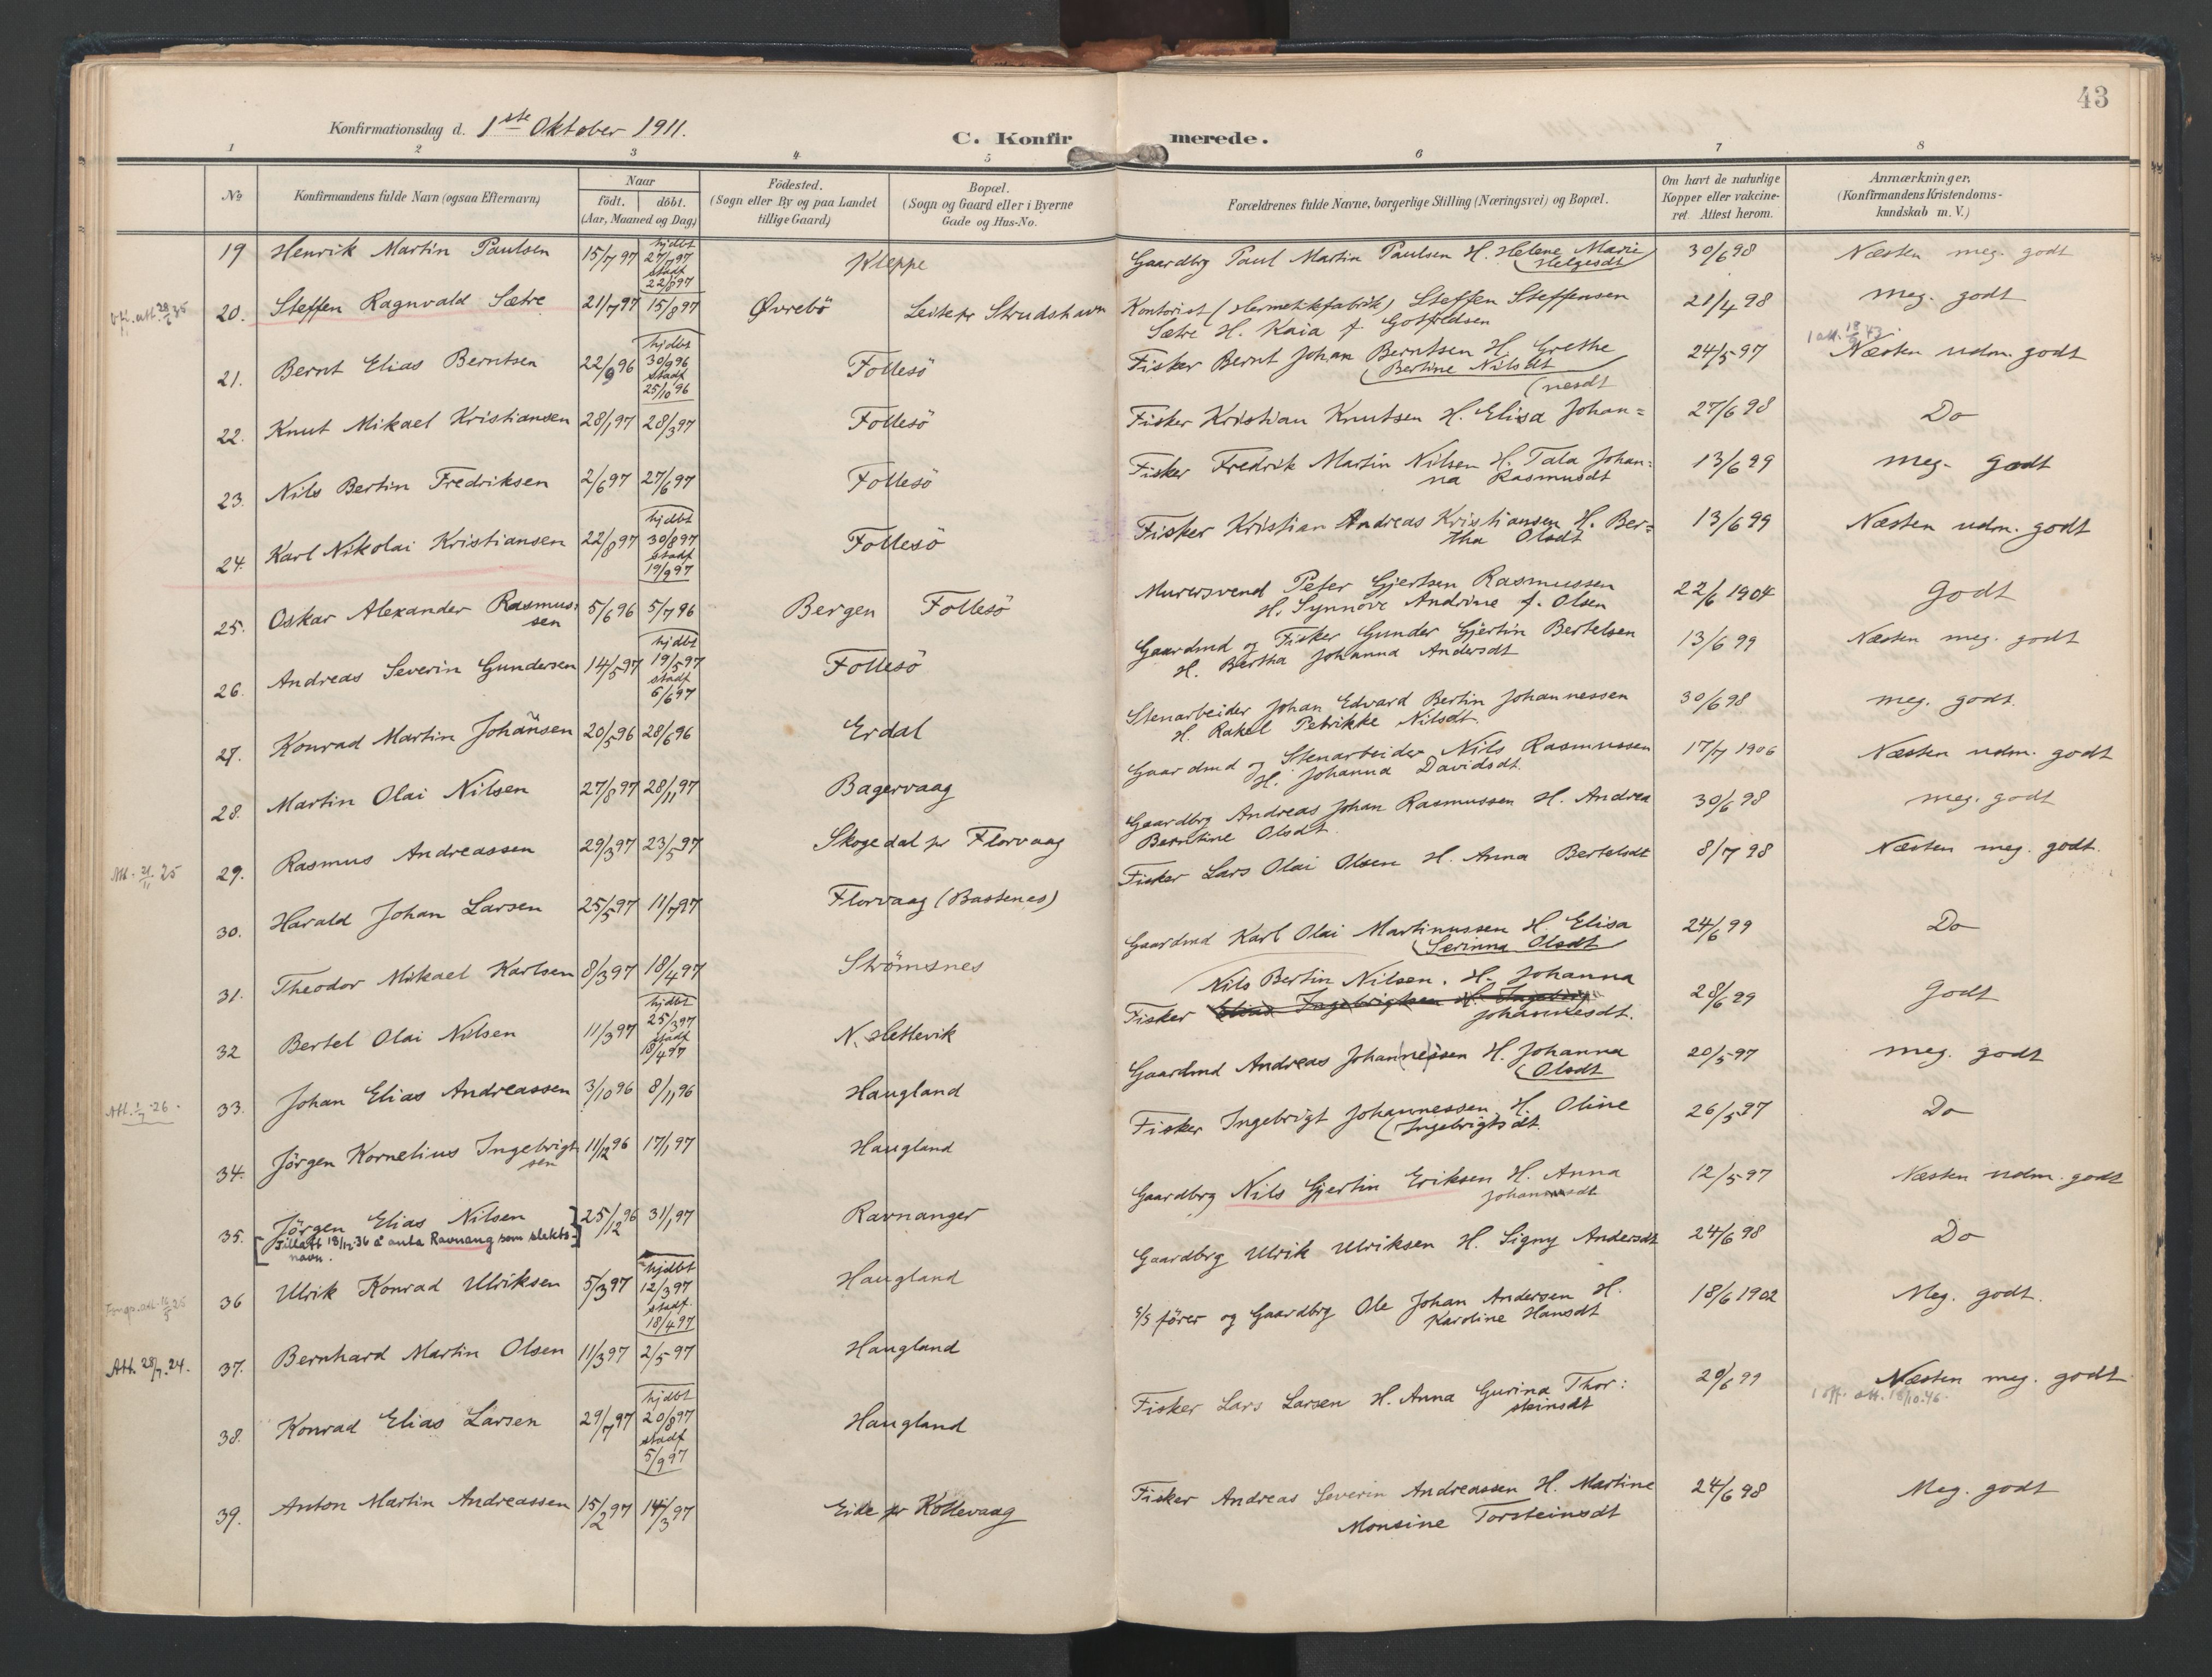 43
Konfirmationsdag d. 1ste Oktober 1911.
C. Konfirmerede.
1 2 3 4 5 6 7 8
No
Konfirmandens fulde Navn (ogsaa Efternavn)
Naar
födt. döbt.
(Aar, Maaned og Dag)
Födested.
(Sogn eller By og paa Landet
tillige Gaard)
Bopæl.
(Sogn og Gaard eller i Byerne
Gade og Hus-No.
Forældrenes fulde Navne, borgerlige Stilling (Næringsvei) og Bopæl.
Om havt de naturlige
Kopper eller vakcine-
ret. Attest herom.
Anmærkninger.
(Konfirmandens Kristendoms-
kundskab m. V.)
19 Henrik Martin Paulsen 15/7 97 hjdbt 27/7 97 stadf 22/8 97 Kleppe Gaardbrg Paul Martin Paulsen H. Helene Marie Helgesdt 30/6 98 Næsten meg. godt
20. Steffen Ragnvald Sætre 21/7 97 15/8 97 Øvrebö Leite pr Strudshavn Kontorist (Hermetikfabrik) Steffen Steffensen 21/4 98 meg. godt
Sætre H. Kaia f. Gotfredsen
21. Bernt Elias Berntsen 22/9 96 hjdbt 30/9 96 stadf 25/10 96 Follesö Fisker Bernt Johan Berntsen H. Grethe Bertine Nilsdt 24/5 97 Næsten udm. godt
22. Knut Mikael Kristiansen 28/1 97 28/3 97 Follesö Fisker Kristian Knutsen H. Elisa Johan=nesdt 27/6 98 Do
23. Nils Bertin Fredriksen 2/6 97 27/6 97 Follesö Fisker Fredrik Martin Nilsen H. Tala Johan: 13/6 99 meg. godt
na Rasmusdt
24. Karl Nikolai Kristiansen 22/8 97 hjdbt 30/8 97 stadf 19/9 97 Follesö Fisker Kristian Andreas Kristiansen H. Ber= 13/6 99 Næsten udm. godt
tha Olsdt
25. Oskar Alexander Rasmus:sen 5/6 96 5/7 96 Bergen Follesö Murersvend Peter Gjertsen Rasmussen 22/6 1904 Godt
H. Synnöve Andrine f. Olsen
26. Andreas Severin Gundersen 14/5 97 hjdbt 19/5 97 stadf 6/6 97 Follesö Gaardmd og Fisker Gunder Gjertin Bertelsen 13/6 99 Næsten meg. godt
H. Bertha Johanna Andersdt
27. Konrad Martin Johansen 20/5 96 28/6 96 Erdal Stenarbeider Johan Edvard Bertin Johannessen 30/6 98 meg. godt.
H. Rakel Petrikke Nilsdt.
28. Martin Olai Nilsen 27/8 97 28/11 97 Bagervaag Gaardmd og Stenarbeider Nils Rasmussen 17/7 1906 Næsten udm. godt
H. Johanna Davidsdt.
Att. 21/11 25 29. Rasmus Andreassen 29/3 97 23/5 97 Skogedal pr Florvaag Gaardbrg Andreas Johan Rasmussen H. Andrea 30/6 98 meg. godt
Berntine Olsdt.
30. Harald Johan Larsen 25/5 97 11/7 97 Florvaag (Bastenes) Fisker Lars Olai Olsen H. Anna Bertelsdt 8/7 98 Næsten meg. godt.
31. Theodor Mikael Karlsen 8/3 97 18/4 97 Strömsnes Gaardmd Karl Olai Martinussen H. Elisa Serinna Olsdt 24/6 99 Do
32 Bertel Olai Nilsen 11/3 97 hjdbt 25/3 97 stadf 18/4 97 N. Hetlevik Nils Bertin Nilsen. H. Johanna
Fisker Elias Ingebrigtsen H. Ingeborg Johannesdt. 28/6 99 Godt
Att. 1/7 26. 33. Johan Elias Andreassen 3/10 96 8/11 96 Haugland Gaardmd Andreas Johan(nes)sen H. Johanna Olsdt 20/5 97 meg. godt
34. Jörgen Kornelius Ingebrigtsen 11/12 96 17/1 97 Haugland Fisker Ingebrigt Johannessen H. Oline Ingebrigtsdt. 26/5 97 Do
35. Jörgen Elias Nilsen 25/12 96 31/1 97 Ravnanger Gaardbrg Nils Gjertin Eriksen H. Anna Johannesdt 12/5 97 Næsten udm. godt
[Tillatt 18/12 36 å anta Ravnang som slekts-navn.]
36 Ulrik Konrad Ulriksen 5/3 97 hjdbt 12/3 97 stadf. 18/4 97 Haugland Gaardbrg Ulrik Ulriksen H. Signy Andersdt 24/6 98 Do
Att. 28/7. 24. 37. Bernhard Martin Olsen 11/3 97 2/5 97 Haugland S/S förer og Gaardbrg Ole Johan Andersen H. 18/6 1902 Meg. godt.
Karoline Hansdt
38. Konrad Elias Larsen 29/7 97 hjdbt 20/8 97 stadf 5/9 97 Haugland Fisker Lars Larsen H. Anna Gurina Thor: 20/6 99 Næsten meg. godt
steinsdt
39. Anton Martin Andreassen 15/2 97 14/3 97 Eide pr Kollevaag Fisker Andreas Severin Andreassen H. Martine 24/6 98 Meg. godt
Monsine Torsteinsdt